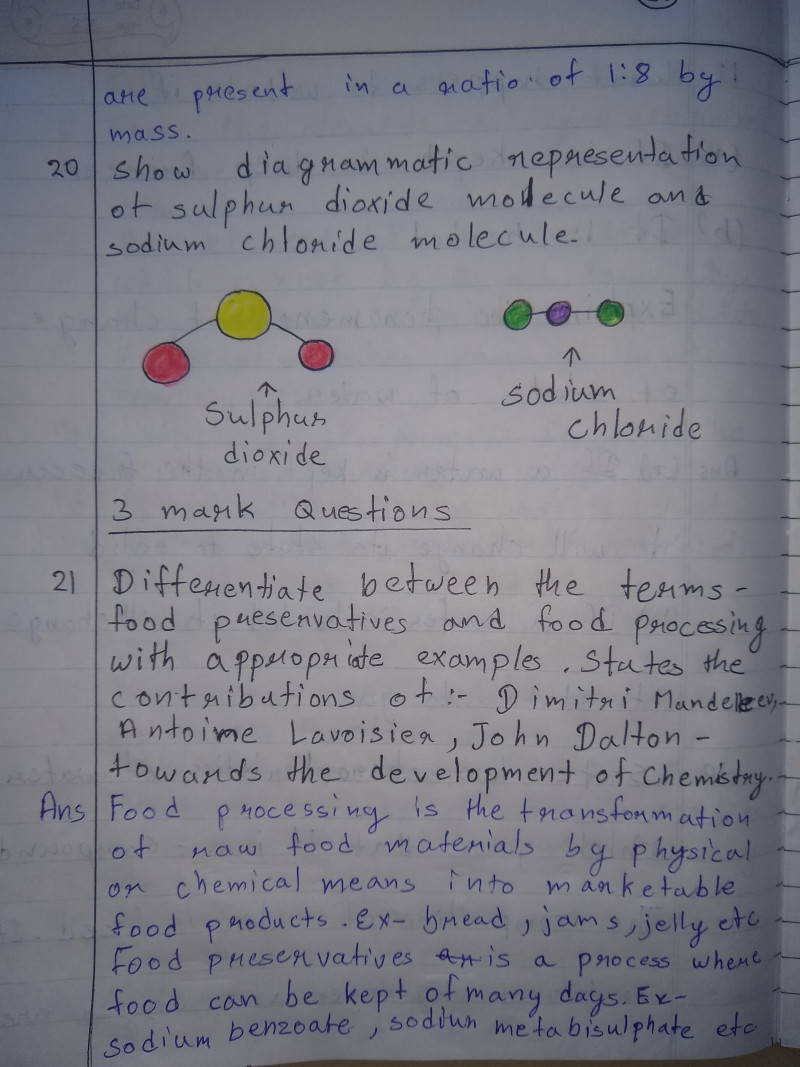 are present in a ratio of 1:8 by
mass.
20 Show diagrammatic representation
of sulphur dioxide molecule and
sodium chloride molecule.
Sulphur
dioxide
sodium
chloride
3 mark Questions
21 Differentiate between the terms -
food preservatives and food processing
with appropriate examples. States the
contributions of :- Dimitri Mandeleev,
Antoine Lavoisier, John Dalton -
towards the development of Chemistry.
Ans Food processing is the transformation
of raw food materials by physical
or chemical means into marketable
food products. Ex- bread, jams, jelly etc
Food preservatives is a process where
food can be kept of many days. Ex-
sodium benzoate, sodiun metabisulphate etc